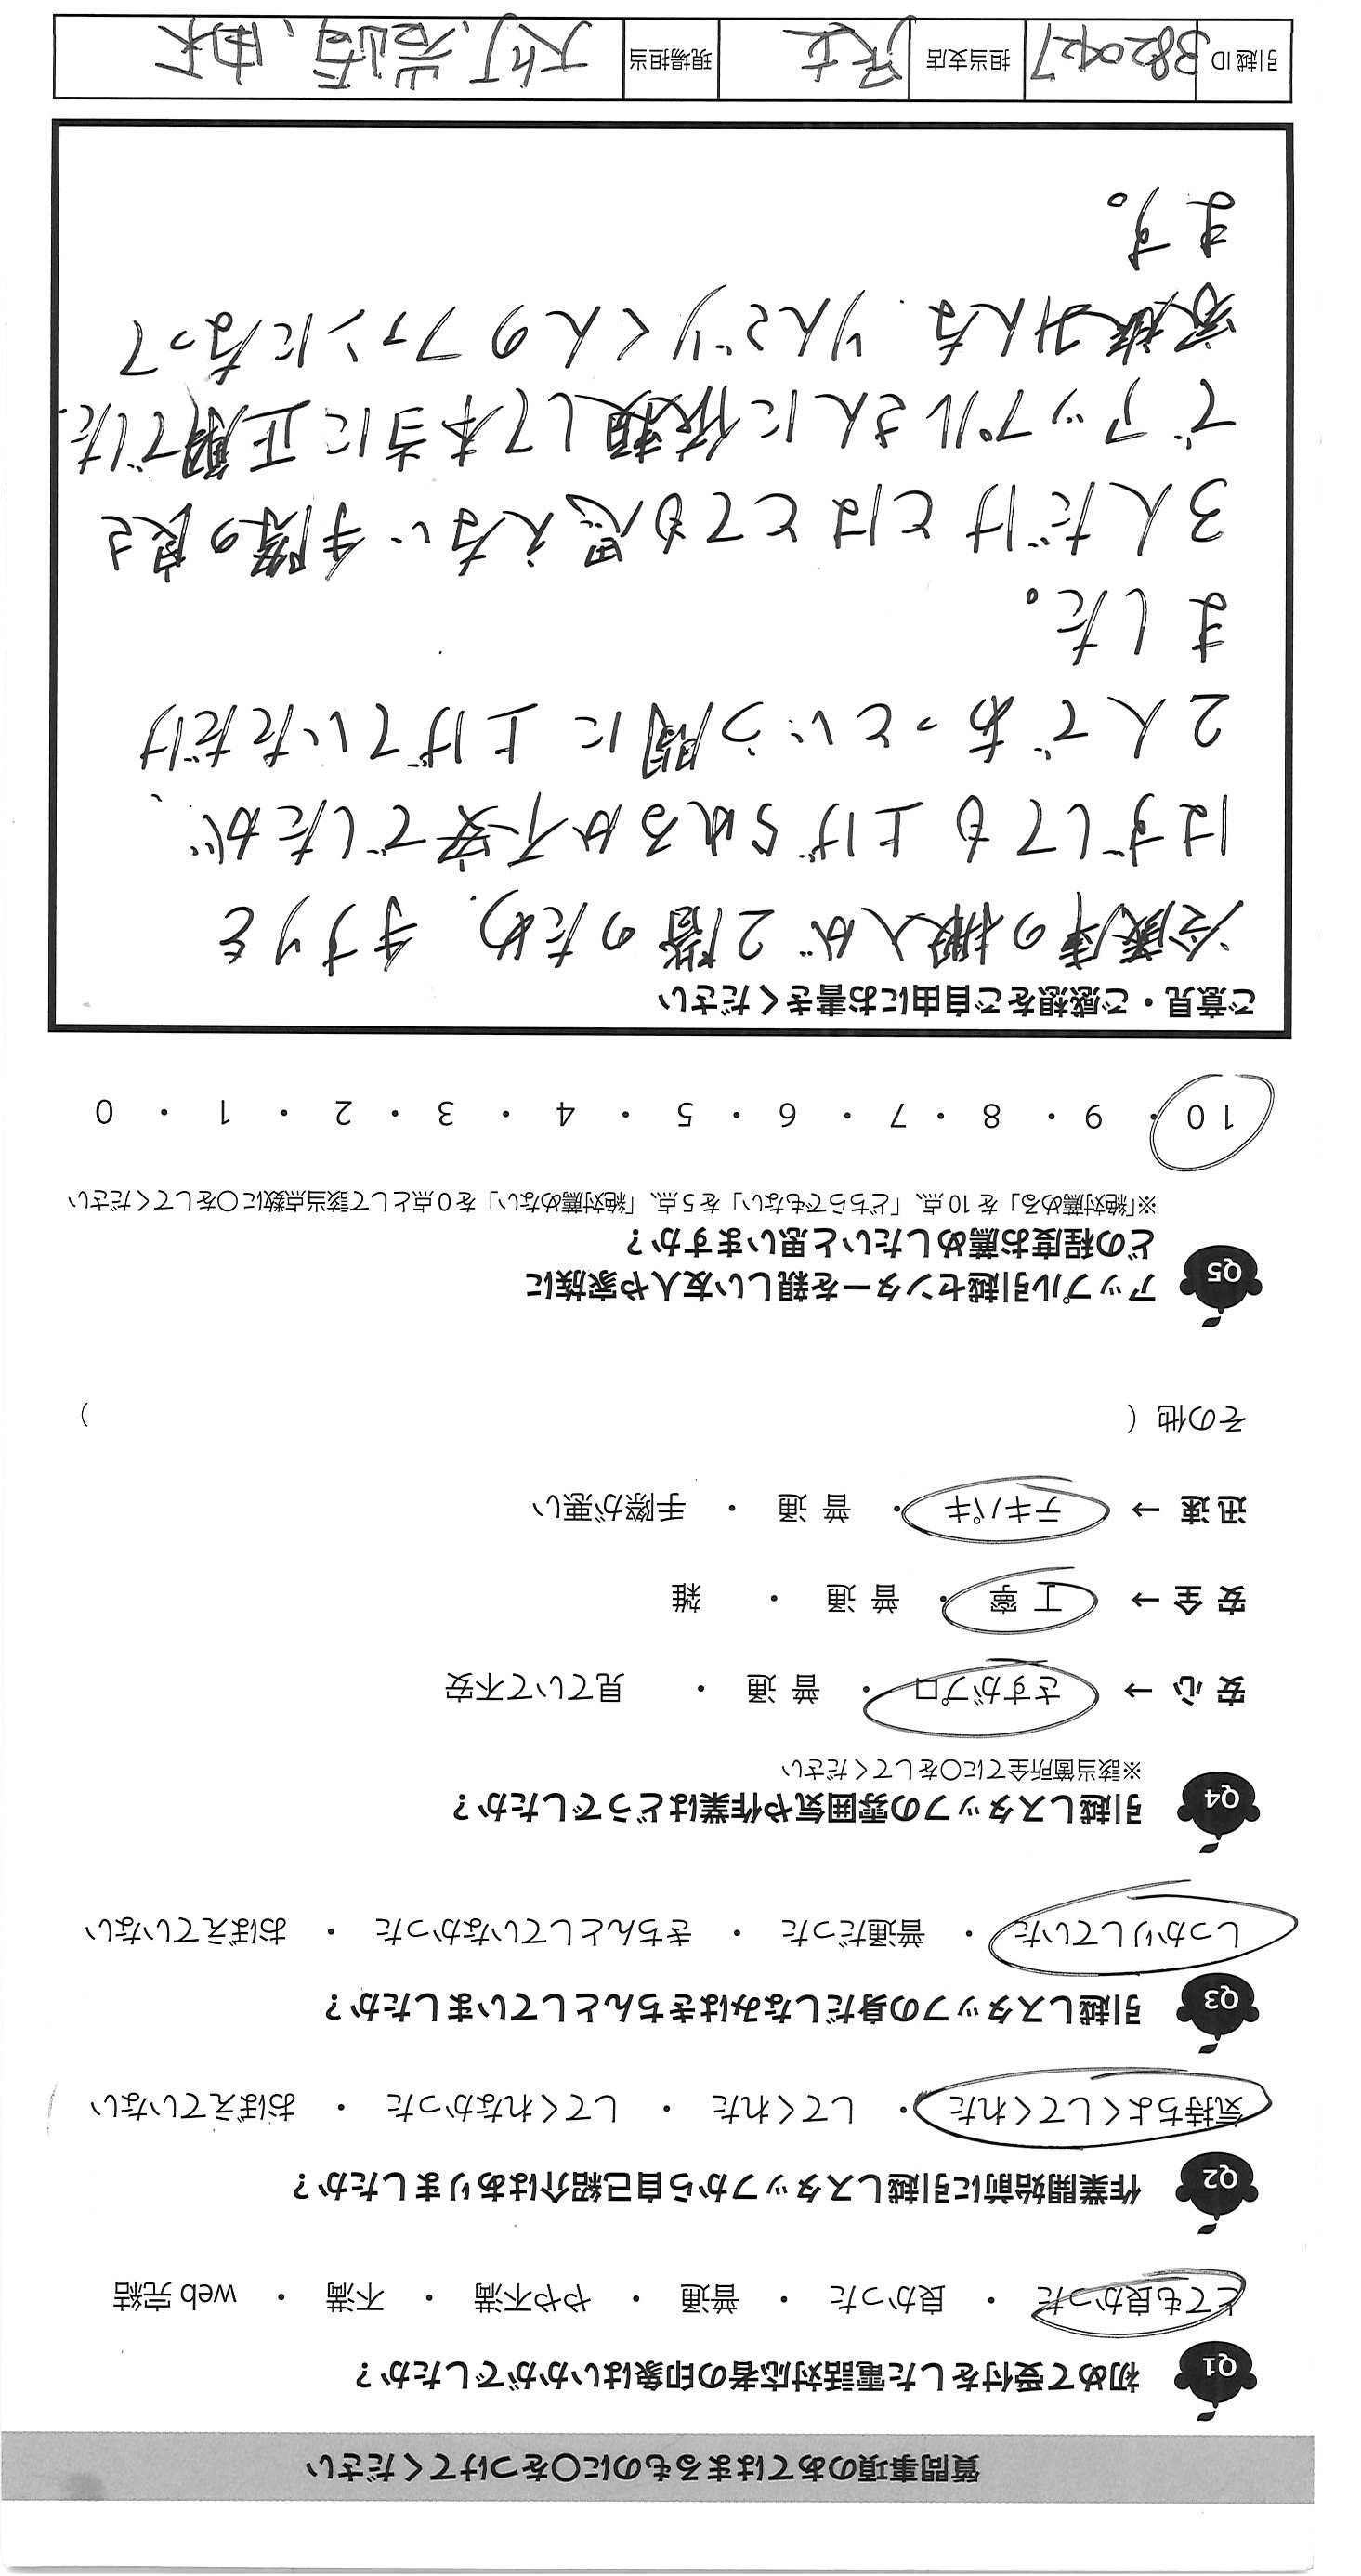 質問事項のあてはまるものに〇をつけてください
Q1 初めて受付をした電話対応者の印象はいかがでしたか？
とても良かった ・ 良かった ・ 普通 ・ やや不満 ・ 不満 ・ web 完結
Q2 作業開始前に引越しスタッフから自己紹介はありましたか？
気持ちよくしてくれた ・ してくれた ・ してくれなかった ・ おぼえていない
Q3 引越しスタッフの身だしなみはきちんとしていましたか？
しっかりしていた ・ 普通だった ・ きちんとしていなかった ・ おぼえていない
Q4 引越しスタッフの雰囲気や作業はどうでしたか？
※該当箇所全てに〇をしてください
安 心 → さすがプロ ・ 普 通 ・ 見ていて不安
安 全 → 丁 寧 ・ 普 通 ・ 雑
迅 速 → テキパキ ・ 普 通 ・ 手際が悪い
その他（ ）
Q5 アップル引越センターを親しい友人や家族に
どの程度お薦めしたいと思いますか？
※「絶対薦める」を 10 点、「どちらでもない」を 5 点、「絶対薦めない」を 0 点として該当点数に〇をしてください
10 ・ 9 ・ 8 ・ 7 ・ 6 ・ 5 ・ 4 ・ 3 ・ 2 ・ 1 ・ 0
ご意見・ご感想をご自由にお書きください
冷蔵庫の搬入が2階のため、手すりを
はずしても上げられるか不安でしたが、
2人であっという間に上げていただけ
ました。
3人だけとはとても思えない手際の良さ
でアップルさんに依頼して本当に正解でした.
家族みんな、りんごりくんのファンになって
ます。
引越 ID 3820427 担当支店 現場担当 大竹、岩崎、由木